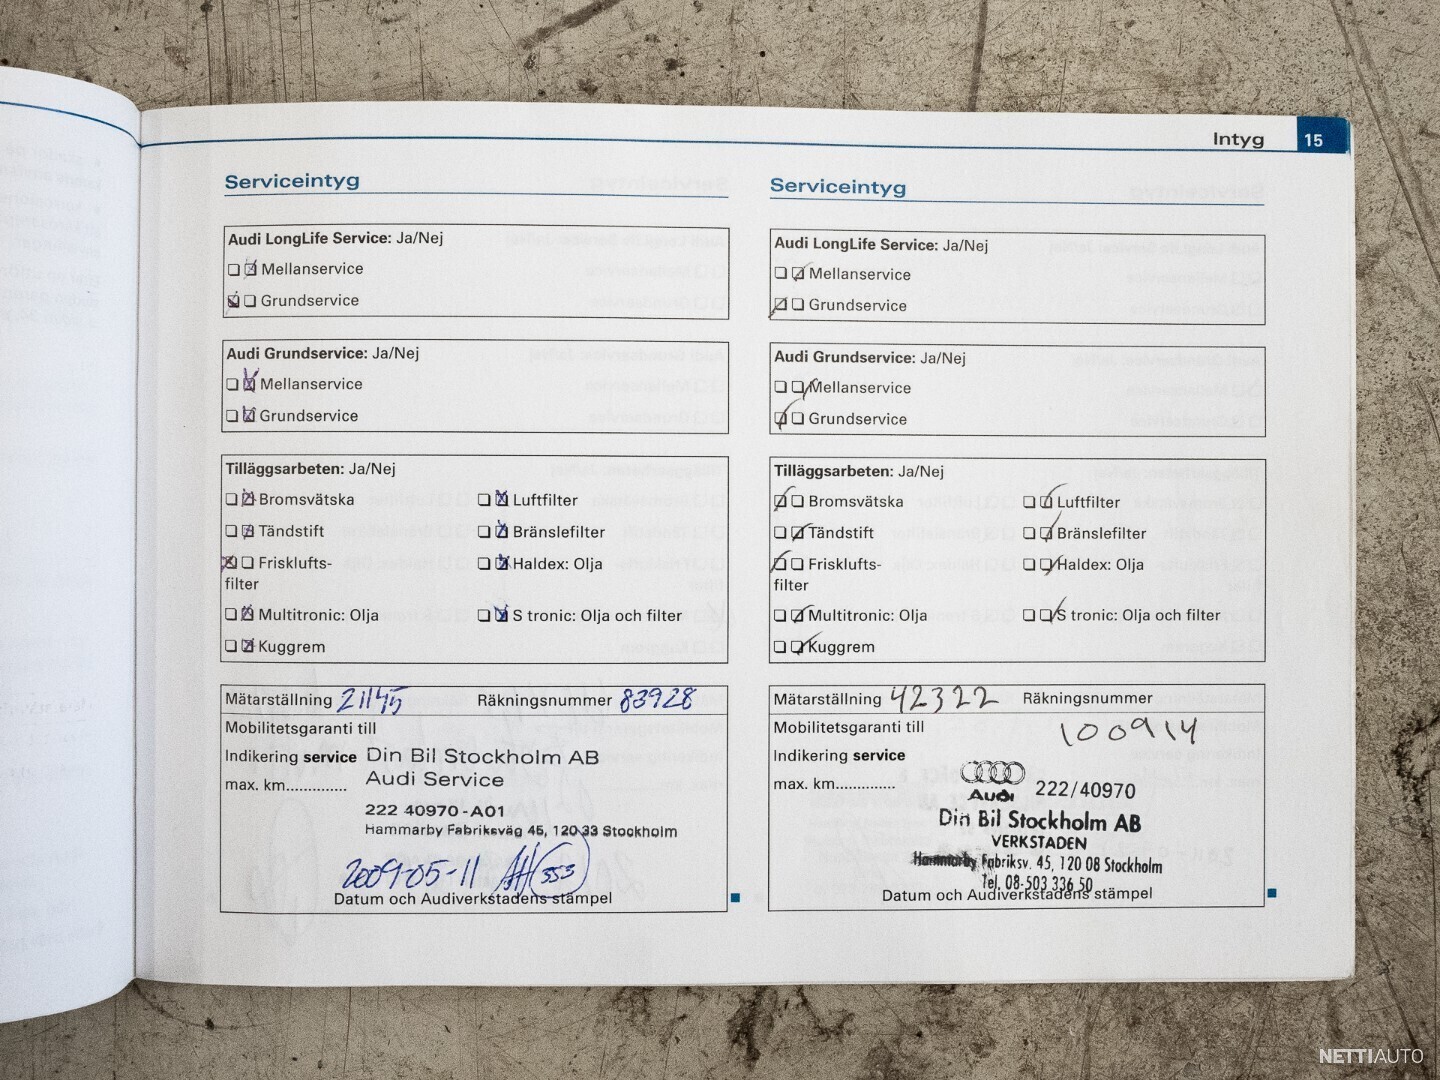 Intyg 15
Serviceintyg
Audi LongLife Service: Ja/Nej
Mellanservice
Grundservice
Audi Grundservice: Ja/Nej
Mellanservice
Grundservice
Tilläggsarbeten: Ja/Nej
Bromsvätska
Luftfilter
Tändstift
Bränslefilter
Frisklufts-
filter
Haldex: Olja
Multitronic: Olja
S tronic: Olja och filter
Kuggrem
Mätarställning 21145 Räkningsnummer 83928
Mobilitetsgaranti till
Indikering service
max. km..............
Din Bil Stockholm AB
Audi Service
222 40970-A01
Hammarby Fabriksväg 45, 120 33 Stockholm
2009-05-11
353
Datum och Audiverkstadens stämpel
Serviceintyg
Audi LongLife Service: Ja/Nej
Mellanservice
Grundservice
Audi Grundservice: Ja/Nej
Mellanservice
Grundservice
Tilläggsarbeten: Ja/Nej
Bromsvätska
Luftfilter
Tändstift
Bränslefilter
Frisklufts-
filter
Haldex: Olja
Multitronic: Olja
S tronic: Olja och filter
Kuggrem
Mätarställning 42322 Räkningsnummer
100914
Mobilitetsgaranti till
Indikering service
max. km..............
Audi 222/40970
Din Bil Stockholm AB
VERKSTADEN
Hammarby Fabriksv. 45, 120 08 Stockholm
Tel. 08-503 336 50
Datum och Audiverkstadens stämpel
NETTIAUTO